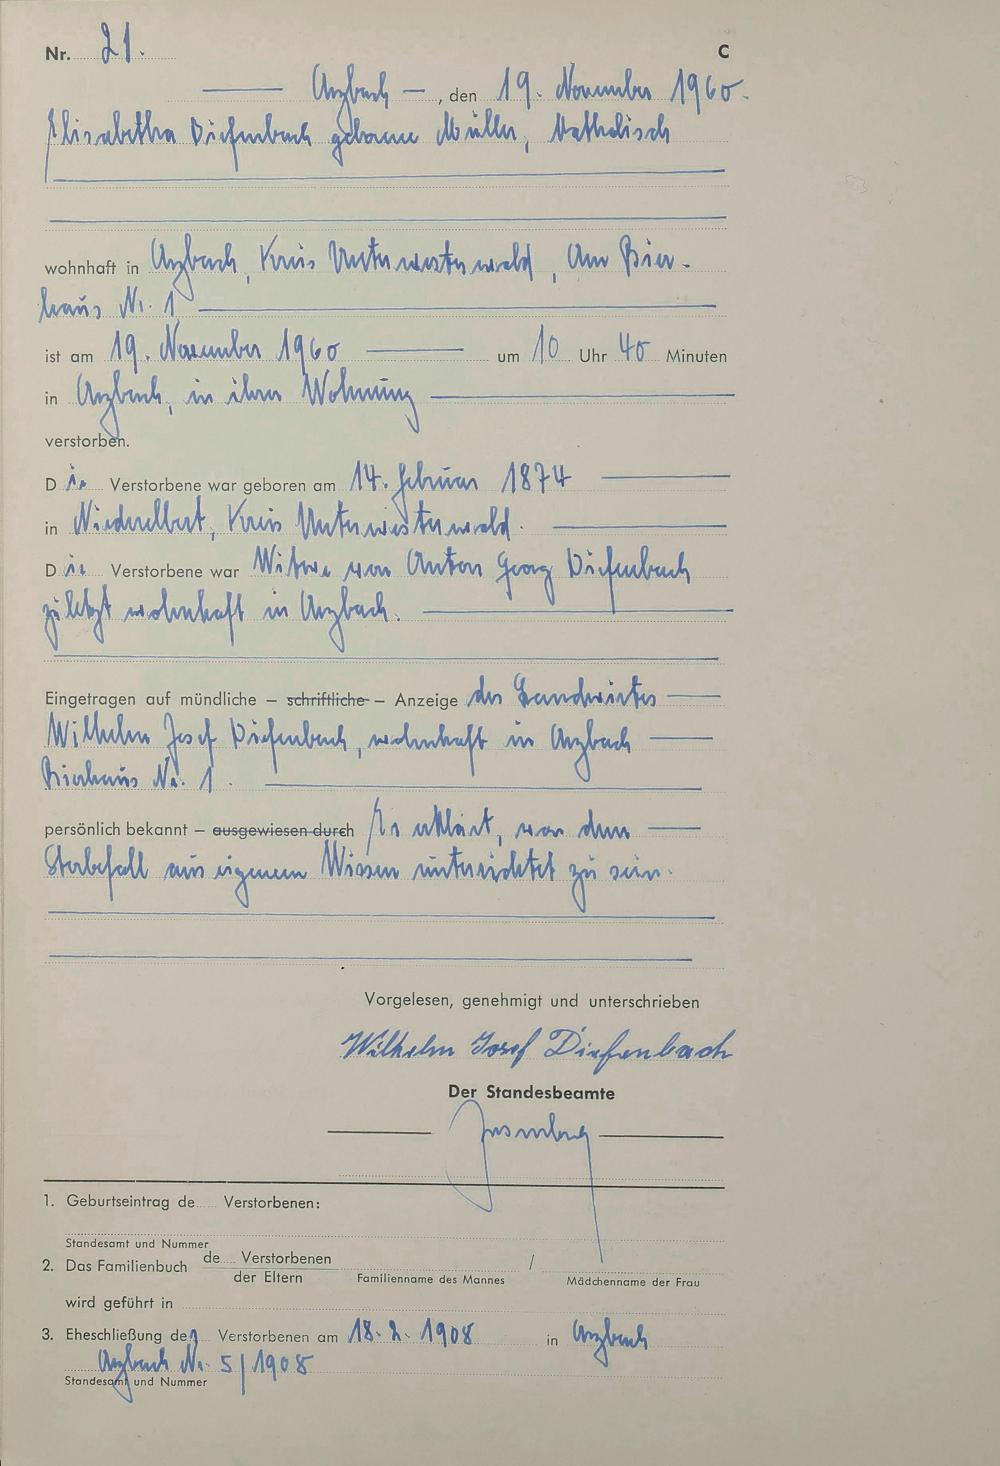 Nr. 21. C
Arzbach, den 19. November 1960.
Elisabetha Diefenbach geborene Müller, katholisch
wohnhaft in Arzbach, Kreis Unterwesterwald, Am Bier-
haus Nr. 1
ist am 19. November 1960 um 10 Uhr 40 Minuten
in Arzbach, in ihrer Wohnung
verstorben.
Die Verstorbene war geboren am 14. Februar 1874
in Niederelbert, Kreis Unterwesterwald.
Die Verstorbene war Witwe von Anton Georg Diefenbach
zuletzt wohnhaft in Arzbach.
Eingetragen auf mündliche – schriftliche – Anzeige des Landwirtes
Wilhelm Josef Diefenbach, wohnhaft in Arzbach
Bierhaus Nr. 1.
persönlich bekannt – ausgewiesen durch Er erklärt, von dem
Sterbefall aus eigenem Wissen unterrichtet zu sein.
Vorgelesen, genehmigt und unterschrieben
Wilhelm Josef Diefenbach
Der Standesbeamte
1. Geburtseintrag de Verstorbenen:
Standesamt und Nummer
2. Das Familienbuch de Verstorbenen /
der Eltern Familienname des Mannes Mädchenname der Frau
wird geführt in
3. Eheschließung der Verstorbenen am 18.2.1908 in Arzbach
Arzbach Nr. 5/1908
Standesamt und Nummer